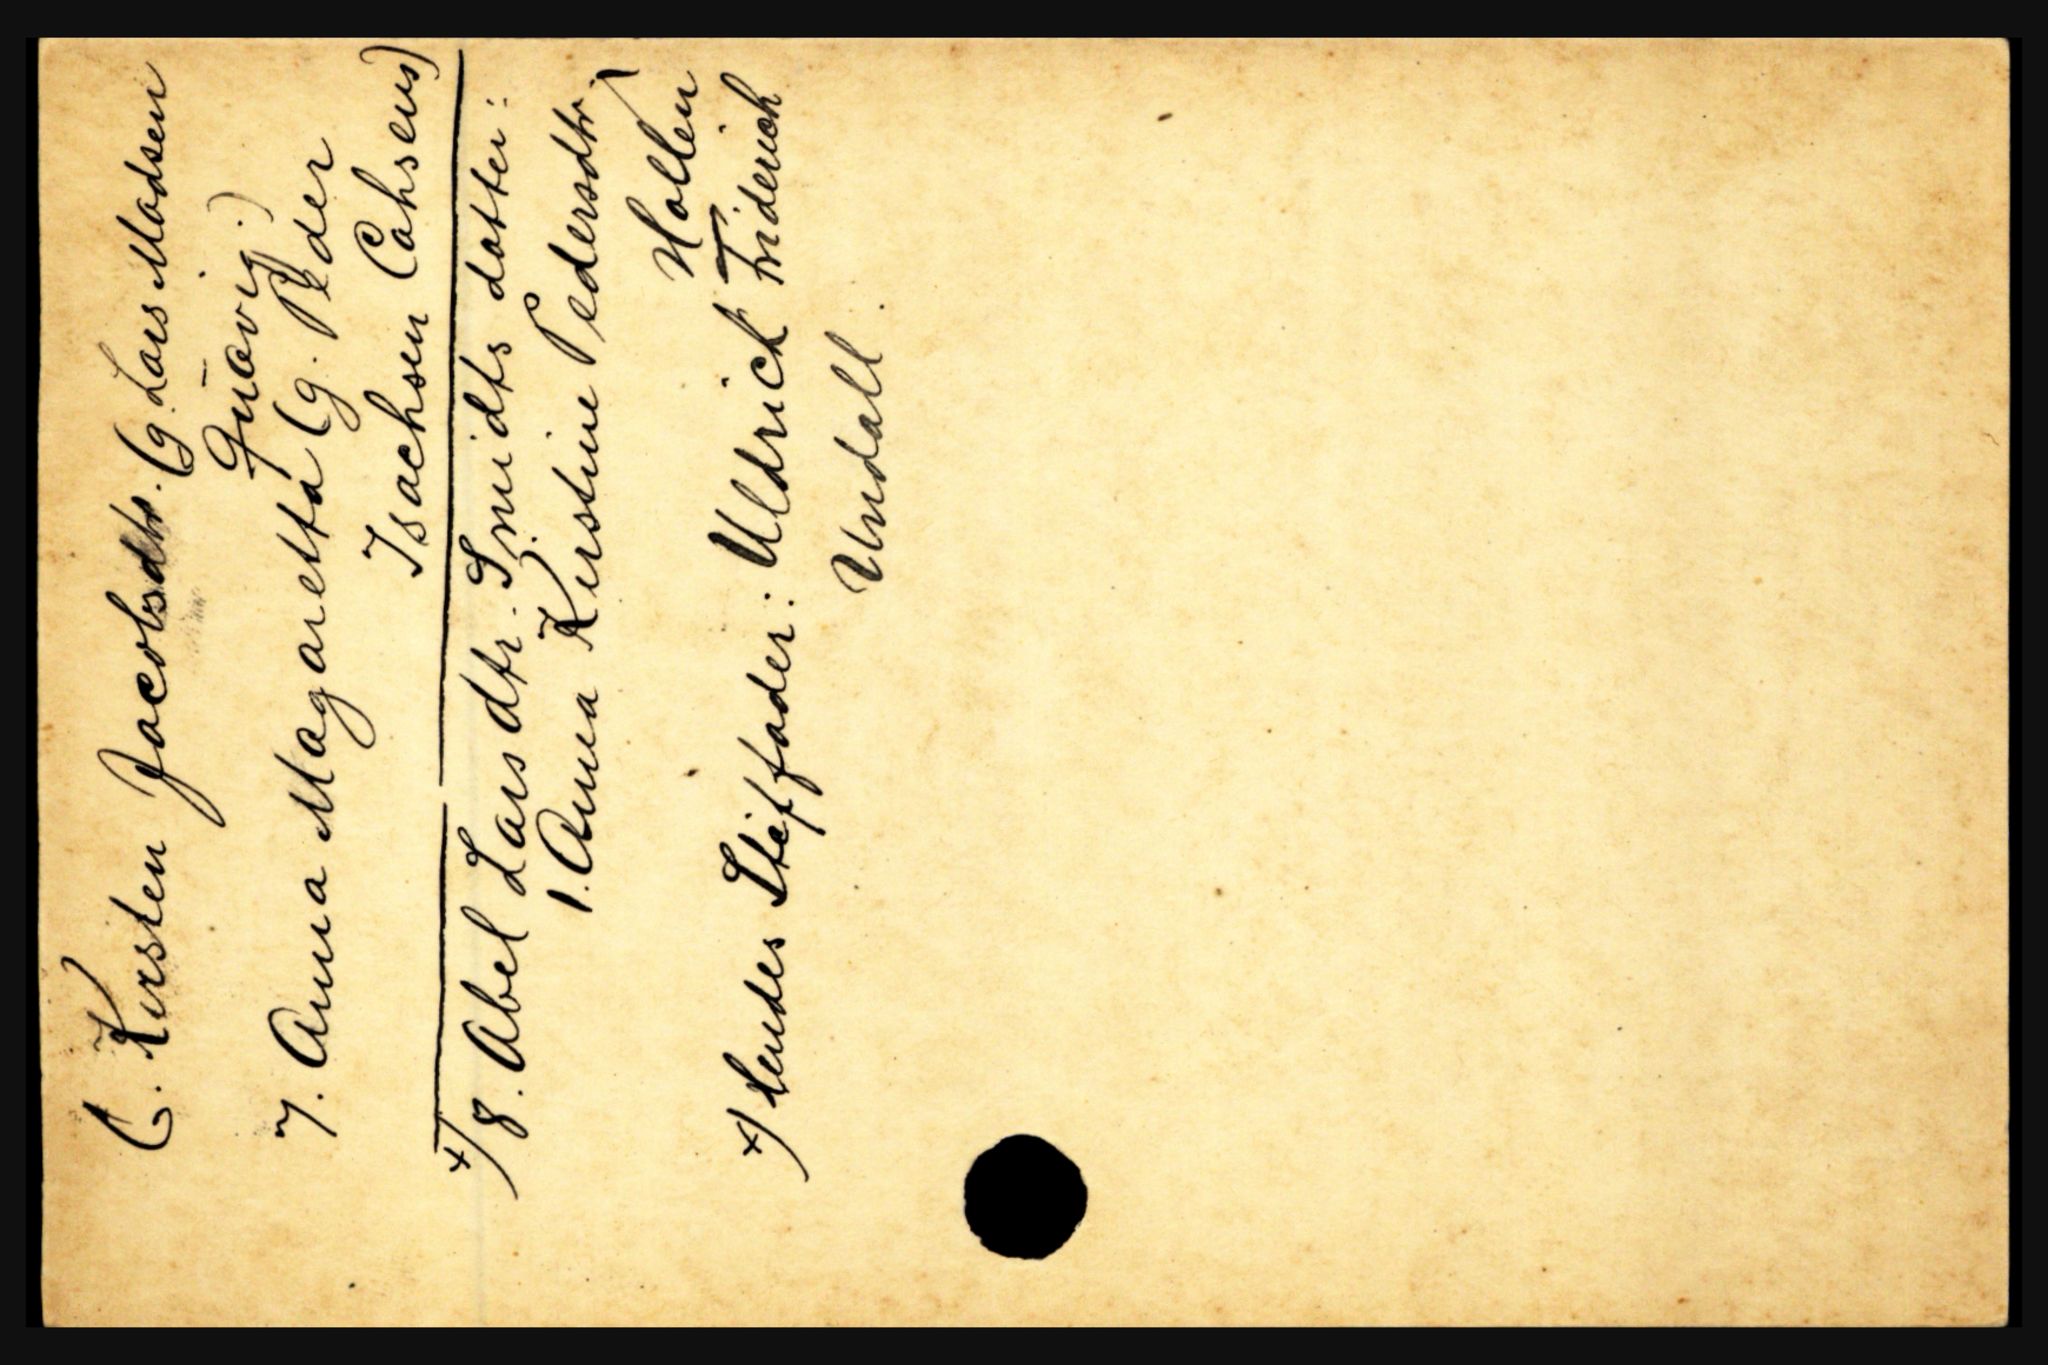 6. Kirsten Jacobsdtr. (g. Lars Madsen
Qucevig.)
7. Anna Magaretta (g. Peder
Isachsen Cahsens)
+) 8. Abel Larsdtr. Smidts datter:
1. Anna Kirstine Pedersdtr.
Hollen
+) hendes Steffader: Uldrich Friderich
Undall.